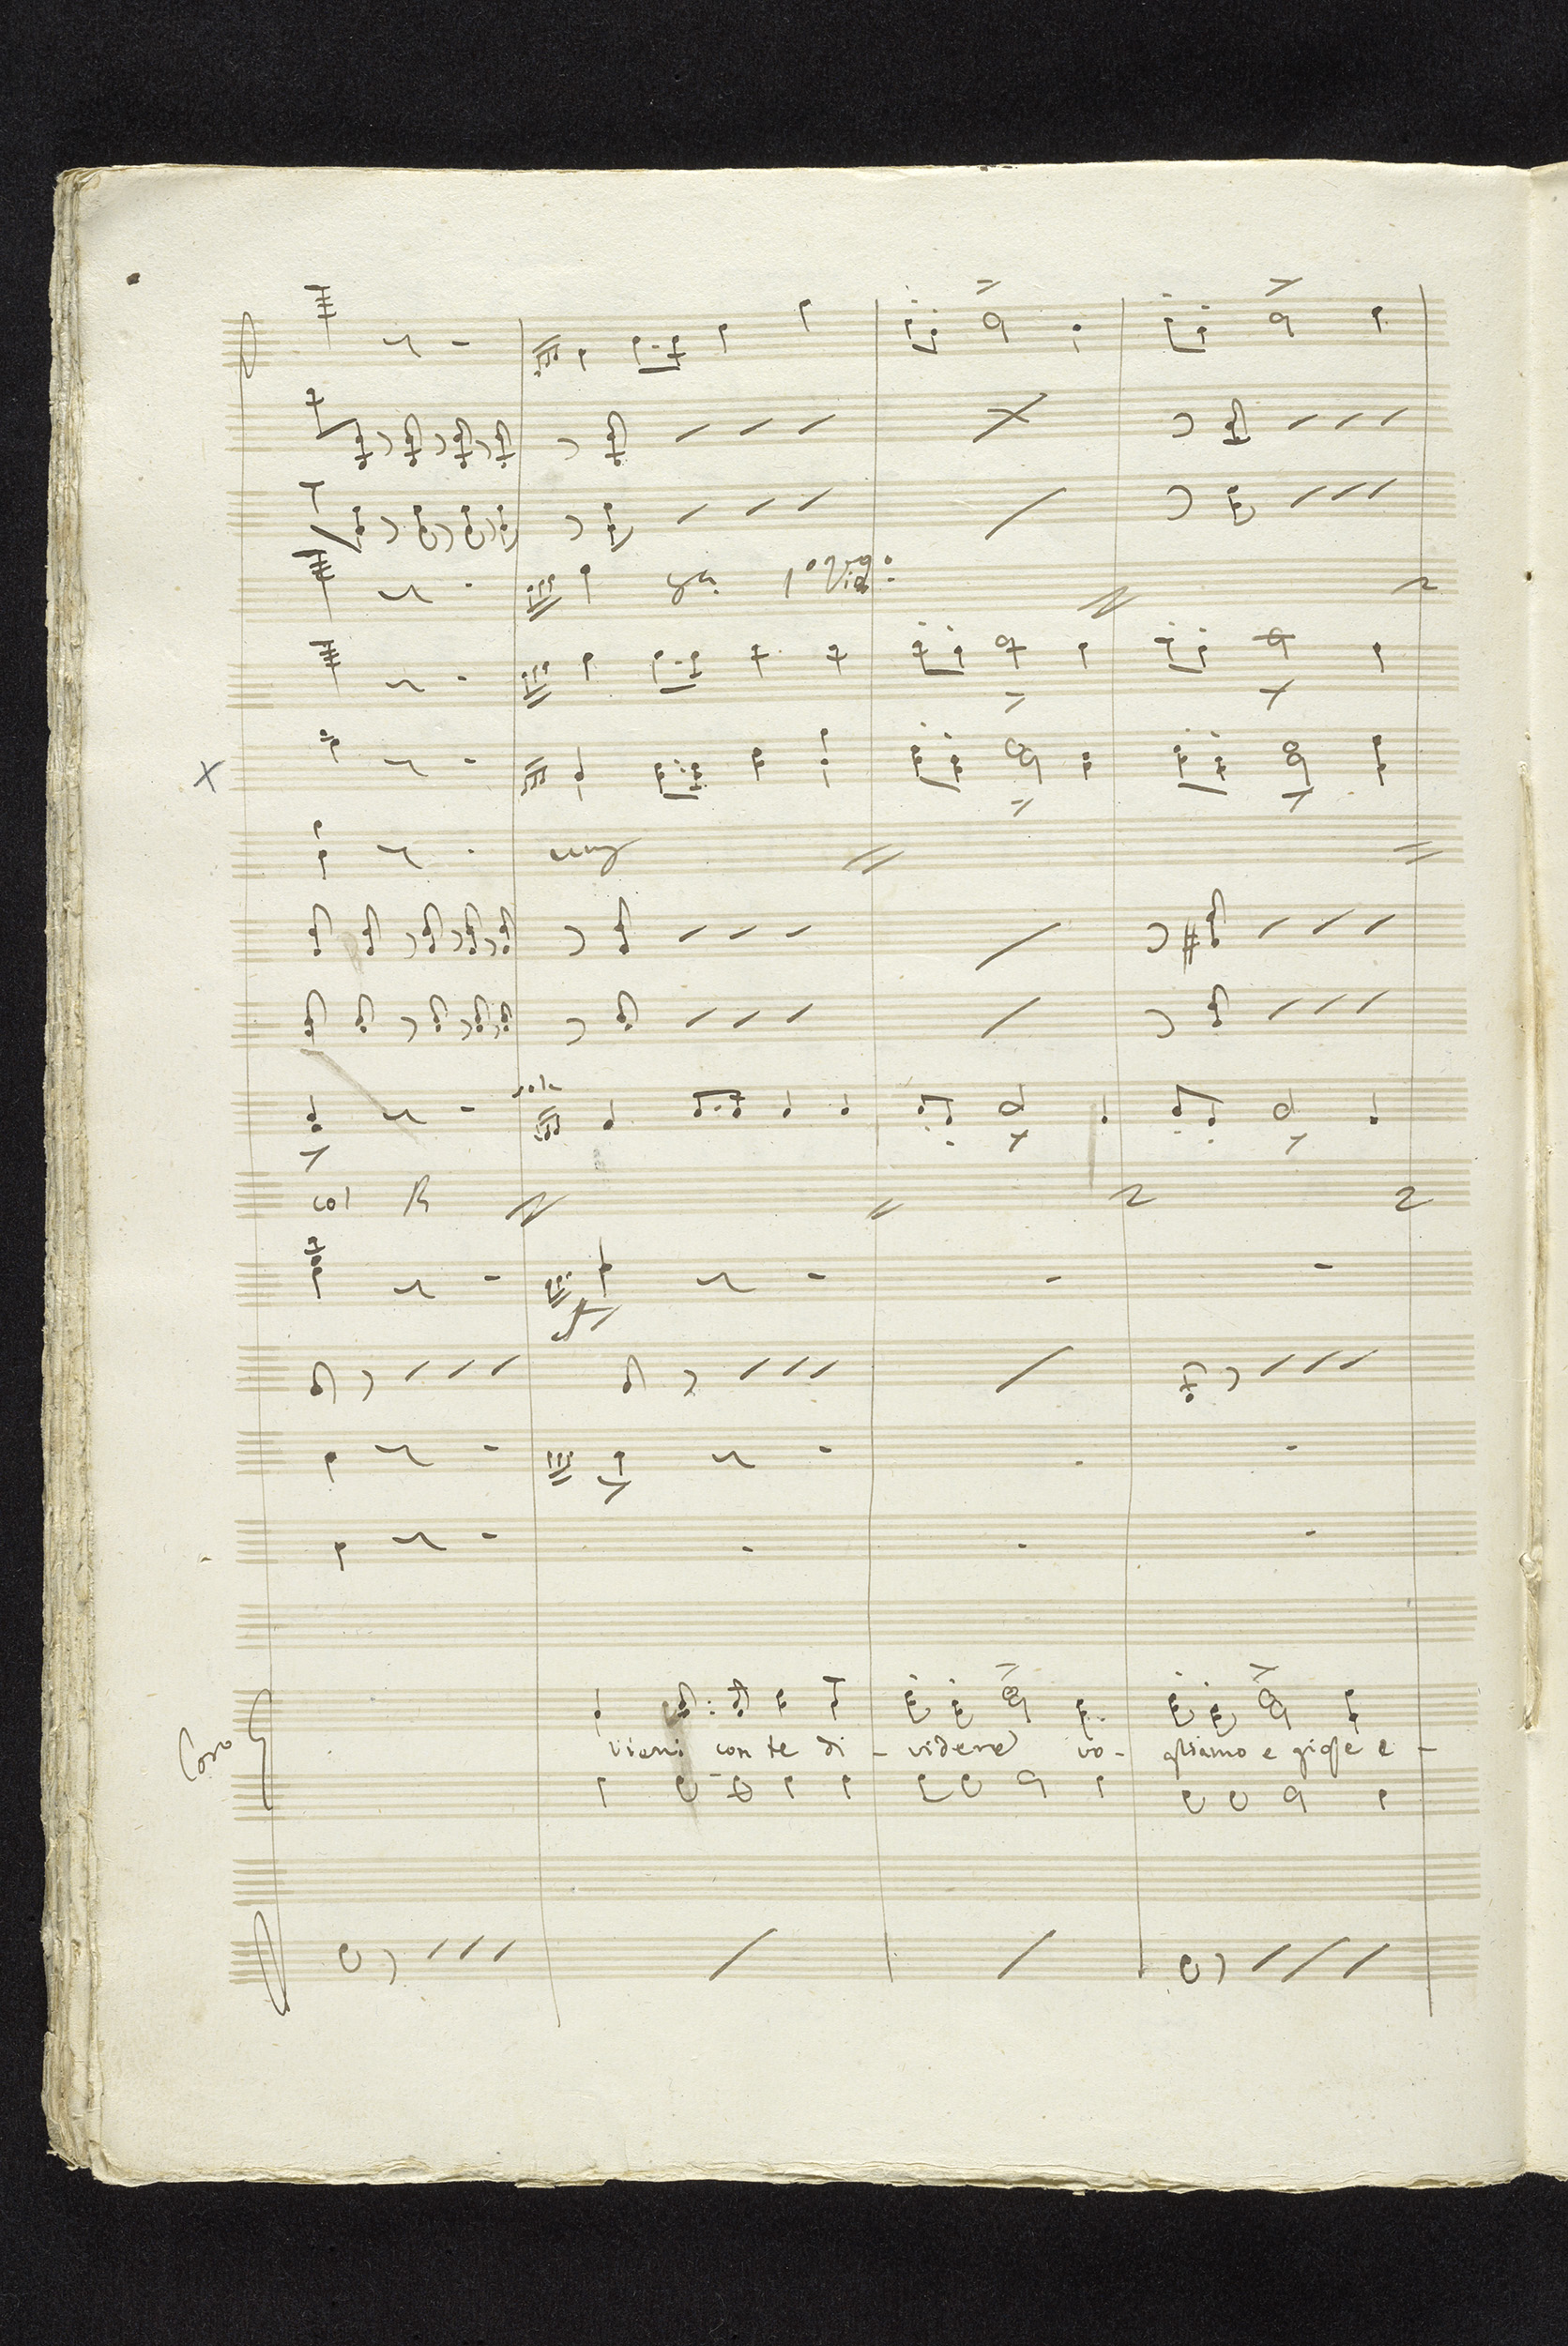 8a 1o Viol:
unis
solo
col B
Coro
Vieni con te di - videre vo - gliamo e gioje e -